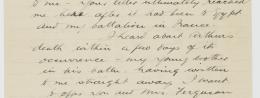 to me - your letter ultimately reached
me here after it had been to Egypt
and my battalion in France.
I heard about Arthurs
death within a few days of its
occurrence - my young brother
in his battn. having written
to me straight away. I meant
Ferguson